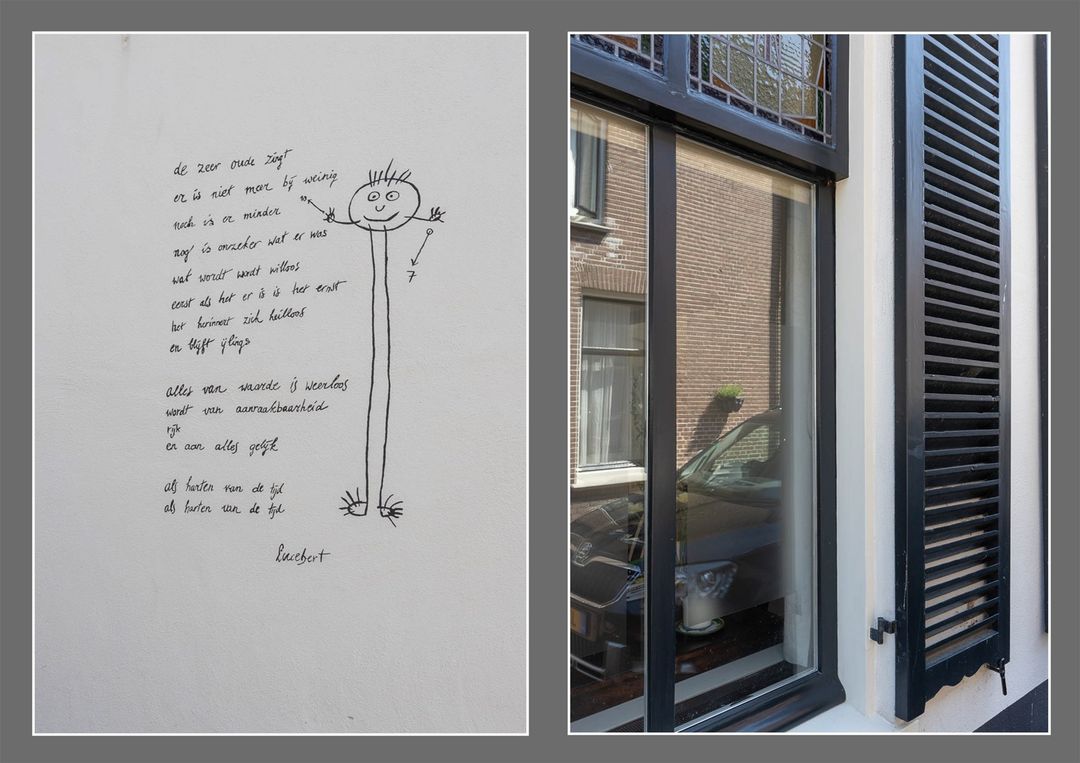 de zeer oude zingt
er is niet meer bij weinig
noch is er minder
nog is onzeker wat er was
wat wordt wordt willoos
eerst als het er is is het ernst
het herinnert zich heilloos
en blijft ijlings
alles van waarde is weerloos
wordt van aanraakbaarheid
rijk
en aan alles gelijk
als harten van de tijd
als harten van de tijd
Lucebert
10
7